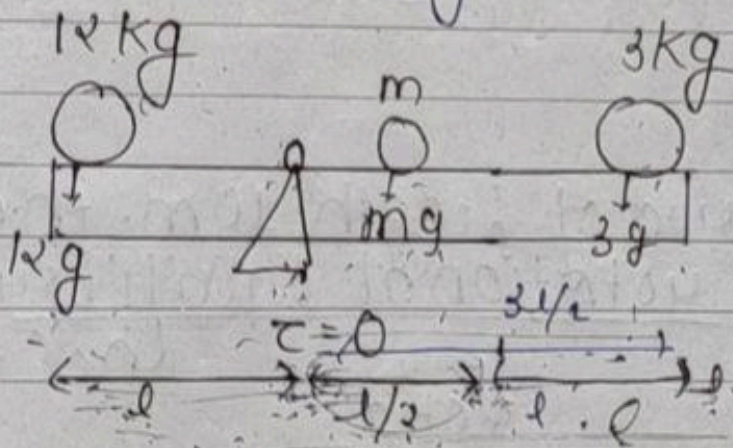 12 kg
3kg
m
12g
mg
3g
τ = 0
3l/2
l
l/2
l . l